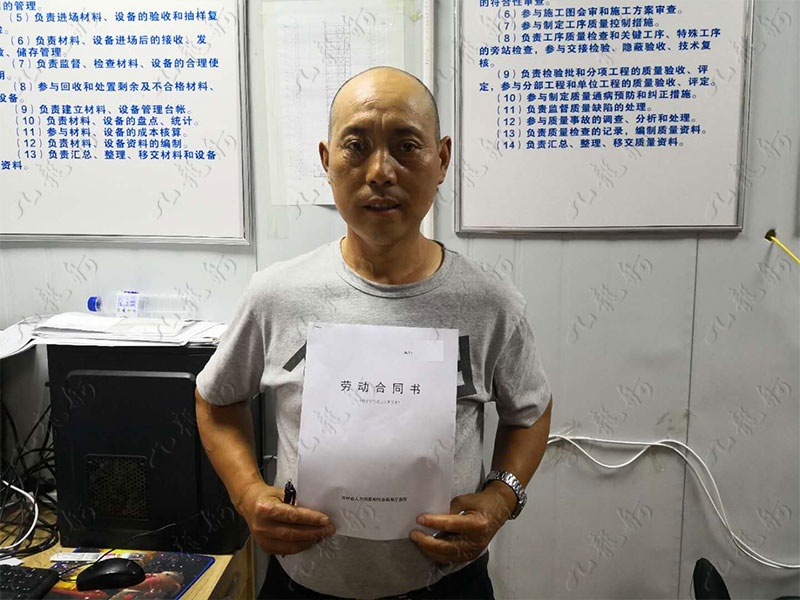 的管理。
（5）负责进场材料、设备的验收和抽样复
（6）负责材料、设备进场后的接收、发
、储存管理。
（7）负责监督、检查材料、设备的合理使
用。
（8）参与回收和处置剩余及不合格材料、
设备。
（9）负责建立材料、设备管理台帐。
（10）负责材料、设备的盘点、统计。
（11）参与材料、设备的成本核算。
（12）负责材料、设备资料的编制。
（13）负责汇总、整理、移交材料和设备
资料。
的符合性审查。
（6）参与施工图会审和施工方案审查。
（7）参与制定工序质量控制措施。
（8）负责工序质量检查和关键工序、特殊工序
的旁站检查，参与交接检验、隐蔽验收、技术复
核。
（9）负责检验批和分项工程的质量验收、评
定，参与分部工程和单位工程的质量验收、评定。
（10）参与制定质量通病预防和纠正措施。
（11）负责监督质量缺陷的处理。
（12）参与质量事故的调查、分析和处理。
（13）负责质量检查的记录，编制质量资料。
（14）负责汇总、整理、移交质量资料。
劳动合同书